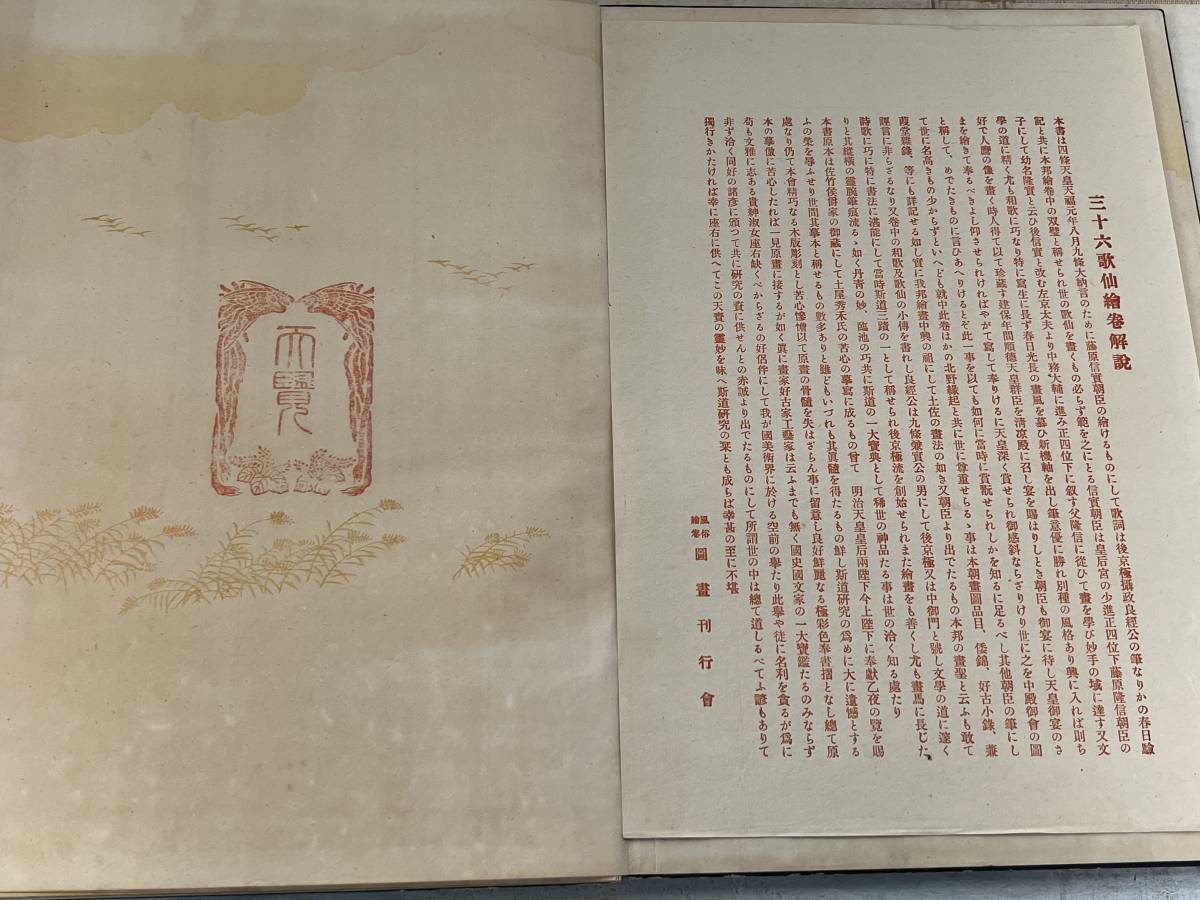 三十六歌仙繪卷解說
本書は四條天皇天福元年八月九條大納言のために藤原信實朝臣の繪けるものにして歌詞は後京極攝政良經公の筆なりかの春日驗
記と共に本邦繪卷中の双璧と稱せられ世の歌仙を畫くもの必らず範を之にとる信實朝臣は皇后宮の少進正四位下藤原隆信朝臣の
子にして幼名隆實と云ひ後信實と改む左京太夫より中務大輔に進み正四位下に叙す父隆信に從ひて畫を學び妙手の域に達す又文
學の道に精く尤も和歌に巧なり特に寫生に長ず春日光長の畫風を慕ひ新機軸を出し筆意優に勝れ別種の風格あり興に入れば則ち
好で人麿の像を畫く時人得て以て珍藏す建保年間順德天皇群臣を淸凉殿に召し宴を賜はりしとき朝臣も御宴に待し天皇御宴のさ
まを繪きて奉るべきよし仰させられければやがて寫して奉りけるに天皇深く賞せられ御感斜ならざりけり世に之を中殿御會の圖
と稱して、めでたきものに言ひあへりけるとぞ此一事を以ても如何に當時に賞翫せられしかを知るに足るべし其他朝臣の筆にし
て世に名高きもの少からずといへども就中此卷はかの北野緣起と共に世に尊重せらるゝ事は本朝畫圖品目、倭錦、好古小錄、兼
葭堂雜錄、等にも詳記せる如し實に我邦繪畫中興の祖にして土佐の畫法の如き又朝臣より出でたるもの本邦の畫聖と云ふも敢て
誣言に非らざるなり又卷中の和歌及歌仙の小傳を書れし良經公は九條兼實公の男にして後京極又は中御門と號し文學の道に遂く
詩歌に巧に特に書法に湛能にして當時斯道三蹟の一として稱せられ後京極流を創始せられまた繪畫をも善くし尤も畫馬に長じた
りと其縱橫の靈腕筆痕流るゝ如く丹靑の妙、臨池の巧共に斯道の一大寶典として稀世の神品たる事は世の洽く知る處たり
本書原本は佐竹侯爵家の御藏にして土屋秀禾氏の苦心の摹寫に成るもの曾て　明治天皇皇后兩陛下今上陛下に奉獻乙夜の覽を賜
ふの榮を辱ふせり世間其摹本と稱せるもの數多ありと雖どもいづれも其眞髓を得たるもの鮮し斯道研究の爲めに大に遺憾とする
處なり仍て本會精巧なる木版彫刻とし苦心慘憺以て原畫の骨髓を失はざらん事に留意し良好鮮麗なる極彩色奉書摺となし總て原
本の摹倣に苦心したれば一見原畫に接するが如く眞に畫家好古家工藝家は云ふまでも無く國史國文家の一大寶鑑たるのみならず
荀も文雅に志ある貴紳淑女座右缺くべからざるの好侶伴にして我が國美術界に於ける空前の擧たり此擧や徒に名利を貪るが爲に
非ず洽く同好の諸彥に頒つて共に硏究の資に供せんとの赤誠より出でたるものにして所謂世の中は總て道しるべてふ諺もありて
獨行きかたければ幸に座右に供へてこの天賚の靈妙を味へ斯道研究の栞とも成らば幸甚の至に不堪
風俗繪卷圖畫刊行會
天覽